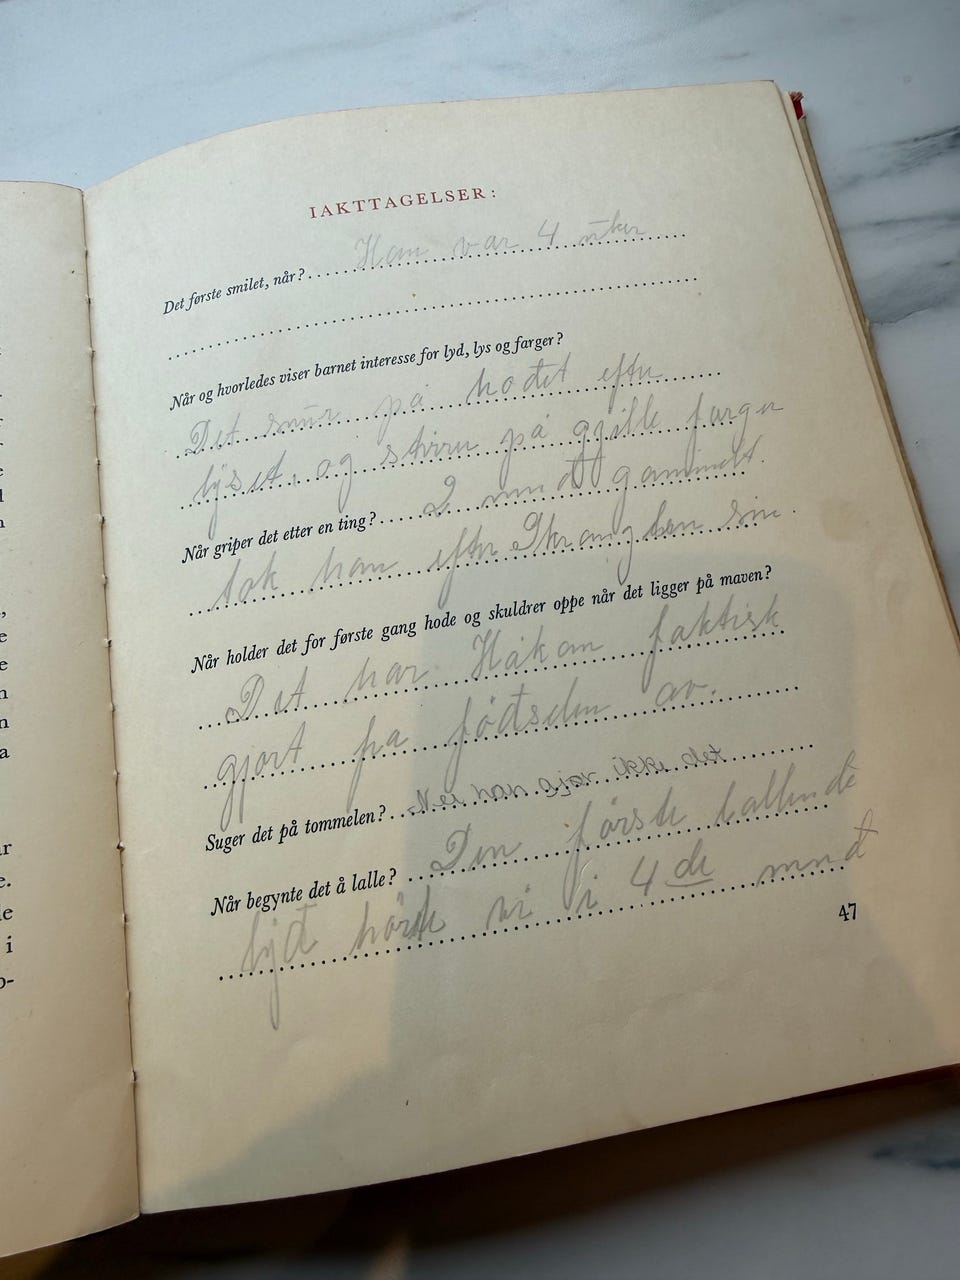 IAKTTAGELSER:
Det første smilet, når? Han var 4 uker
Når og hvorledes viser barnet interesse for lyd, lys og farger?
Det snur på hodet efter
lyset, og stirrer på gjille farger
Når griper det etter en ting? 2 mnd gammelt
tok han efter Skranglen sin.
Når holder det for første gang hode og skuldrer oppe når det ligger på maven?
Det har Håkon faktisk
gjort fra fødtselen av.
Suger det på tommelen? Nei han gjør ikke det
Når begynte det å lalle? Den første lallende
lyd hørte vi i 4de mnd
47